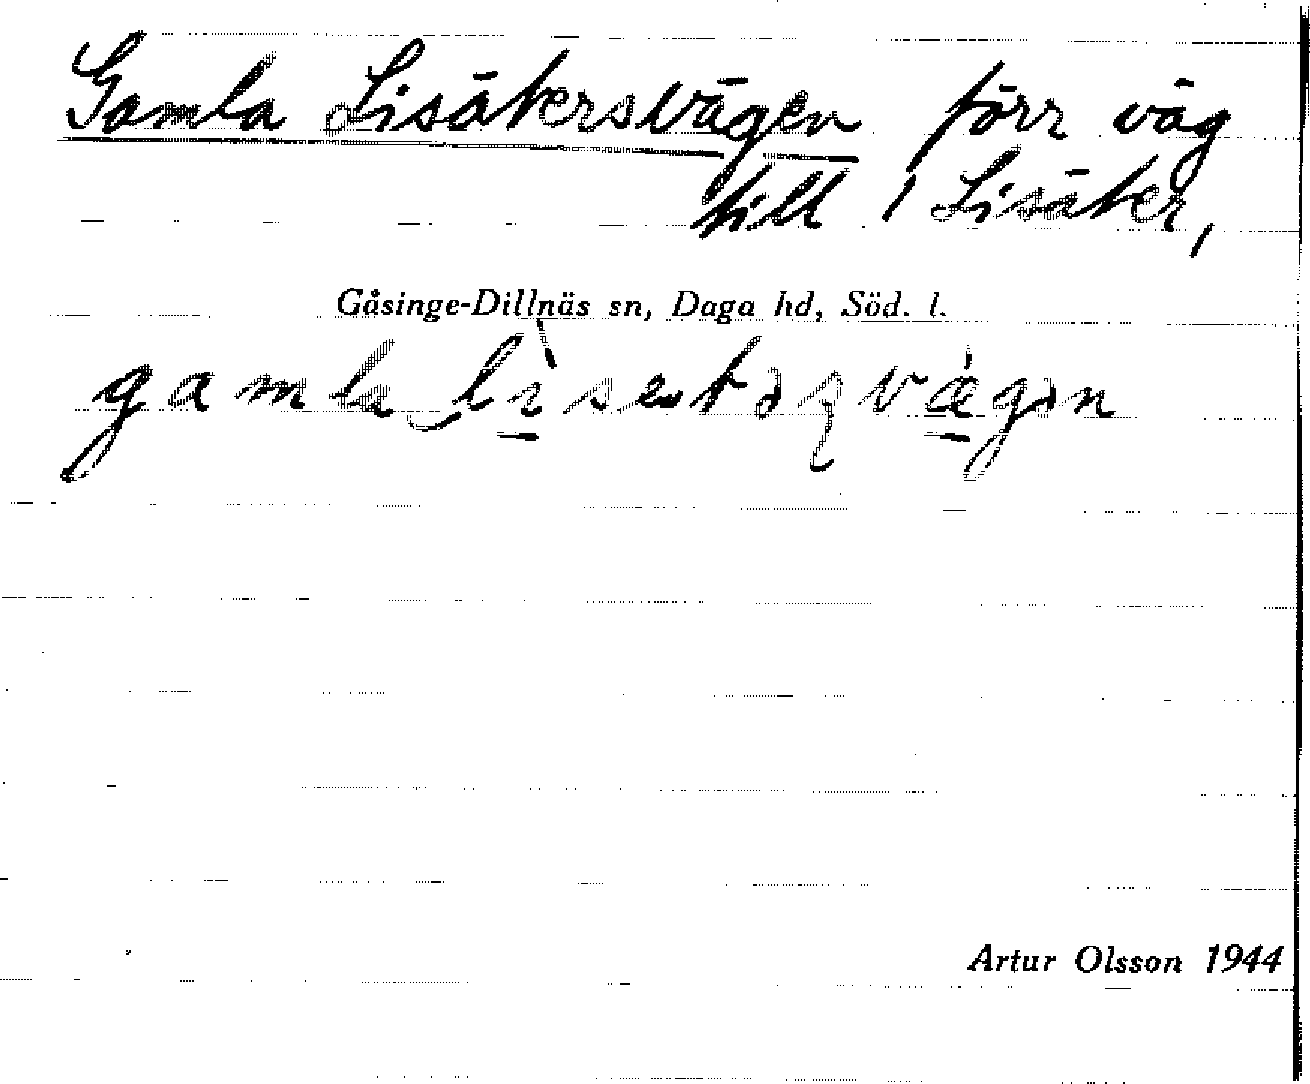 Gamla Lisäkersvägen förr väg
till Lisäker,
Gåsinge-Dillnäs sn, Daga hd, Söd. l.
gamla
Artur Olsson 1944